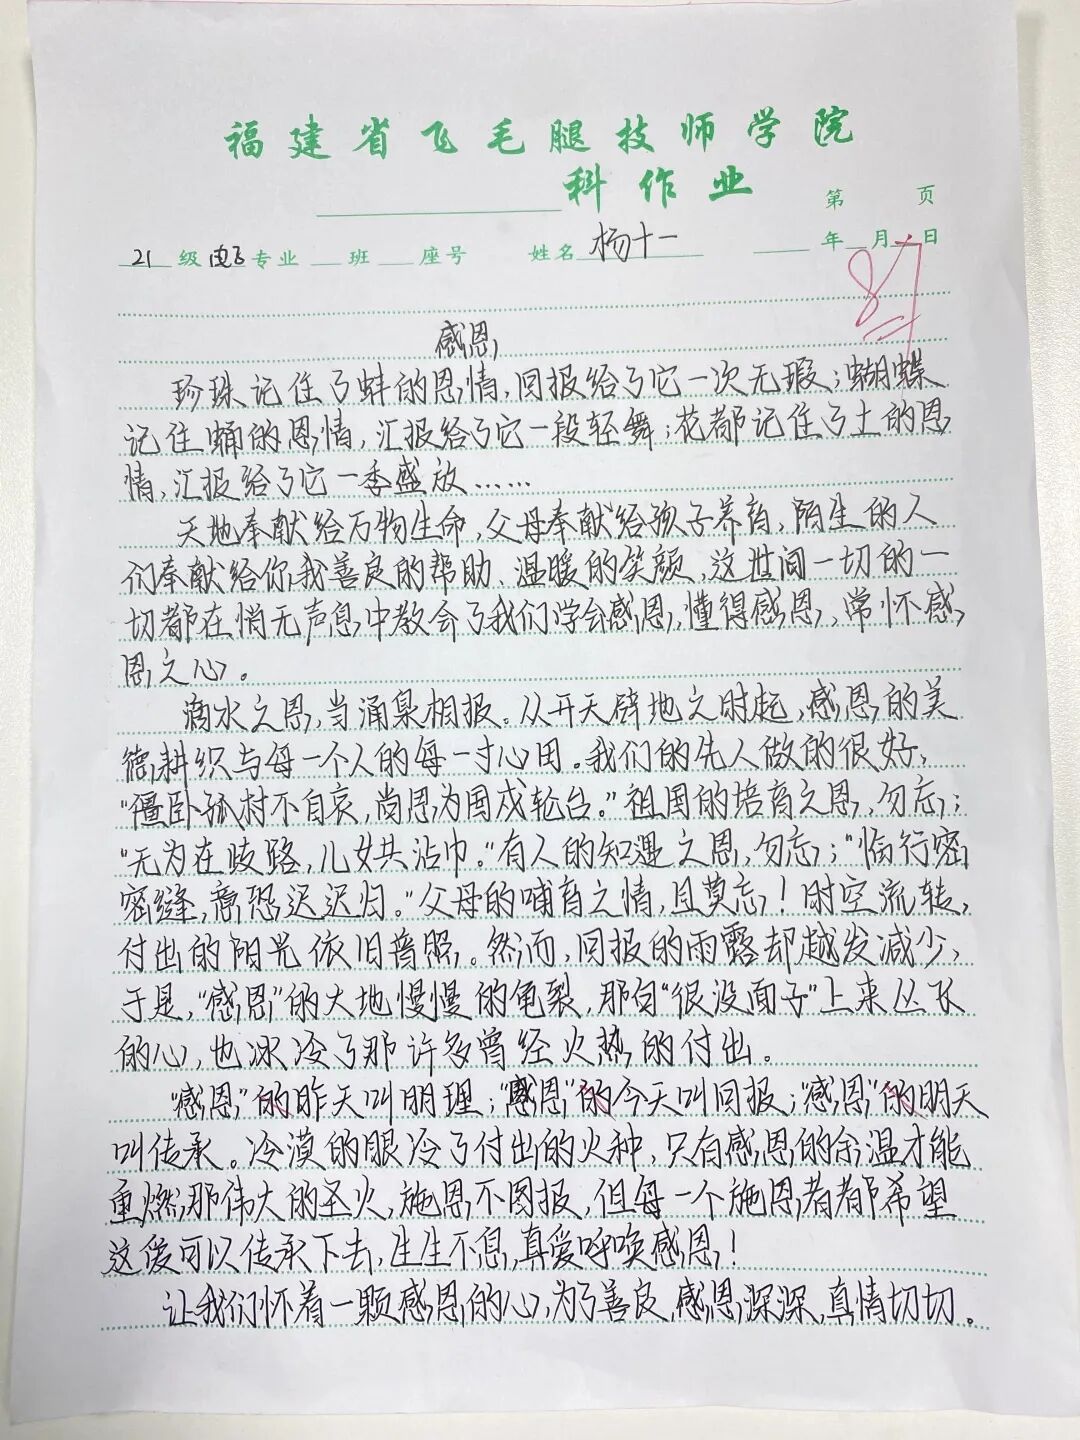 福建省飞毛腿技师学院
科作业
第 页
21 级 电子 专业 班 座号 姓名 杨十一 年 月 日
87
感恩
珍珠记住了蚌的恩情,回报给了它一次无瑕;蝴蝶
记住蛹的恩情,汇报给了它一段轻舞;花都记住了土的恩
情,汇报给了它一季盛放……
天地奉献给万物生命,父母奉献给孩子养育,陌生的人
们奉献给你我善良的帮助、温暖的笑颜,这世间一切的一
切都在悄无声息中教会了我们学会感恩,懂得感恩,常怀感
恩之心。
滴水之恩,当涌泉相报。从开天辟地之时起,感恩的美
德耕织与每一个人的每一寸心田。我们的先人做的很好,
“僵卧孤村不自哀,尚思为国戍轮台。”祖国的培育之恩,勿忘;
“无为在歧路,儿女共沾巾。”有人的知遇之恩,勿忘;“临行密
密缝,意恐迟迟归。”父母的哺育之情,且莫忘!时空流转,
付出的阳光依旧普照。然而,回报的雨露却越发减少,
于是,“感恩”的大地慢慢的龟裂,那自“很没面子”上来丛飞
的心,也冰冷了那许多曾经火热的付出。
“感恩”的昨天叫明理;“感恩”的今天叫回报;“感恩”的明天
叫传承。冷漠的眼冷了付出的火种,只有感恩的余温才能
重燃那伟大的圣火,施恩不图报,但每一个施恩者都希望
这爱可以传承下去,生生不息,真爱呼唤感恩!
让我们怀着一颗感恩的心,为了善良,感恩深深,真情切切。